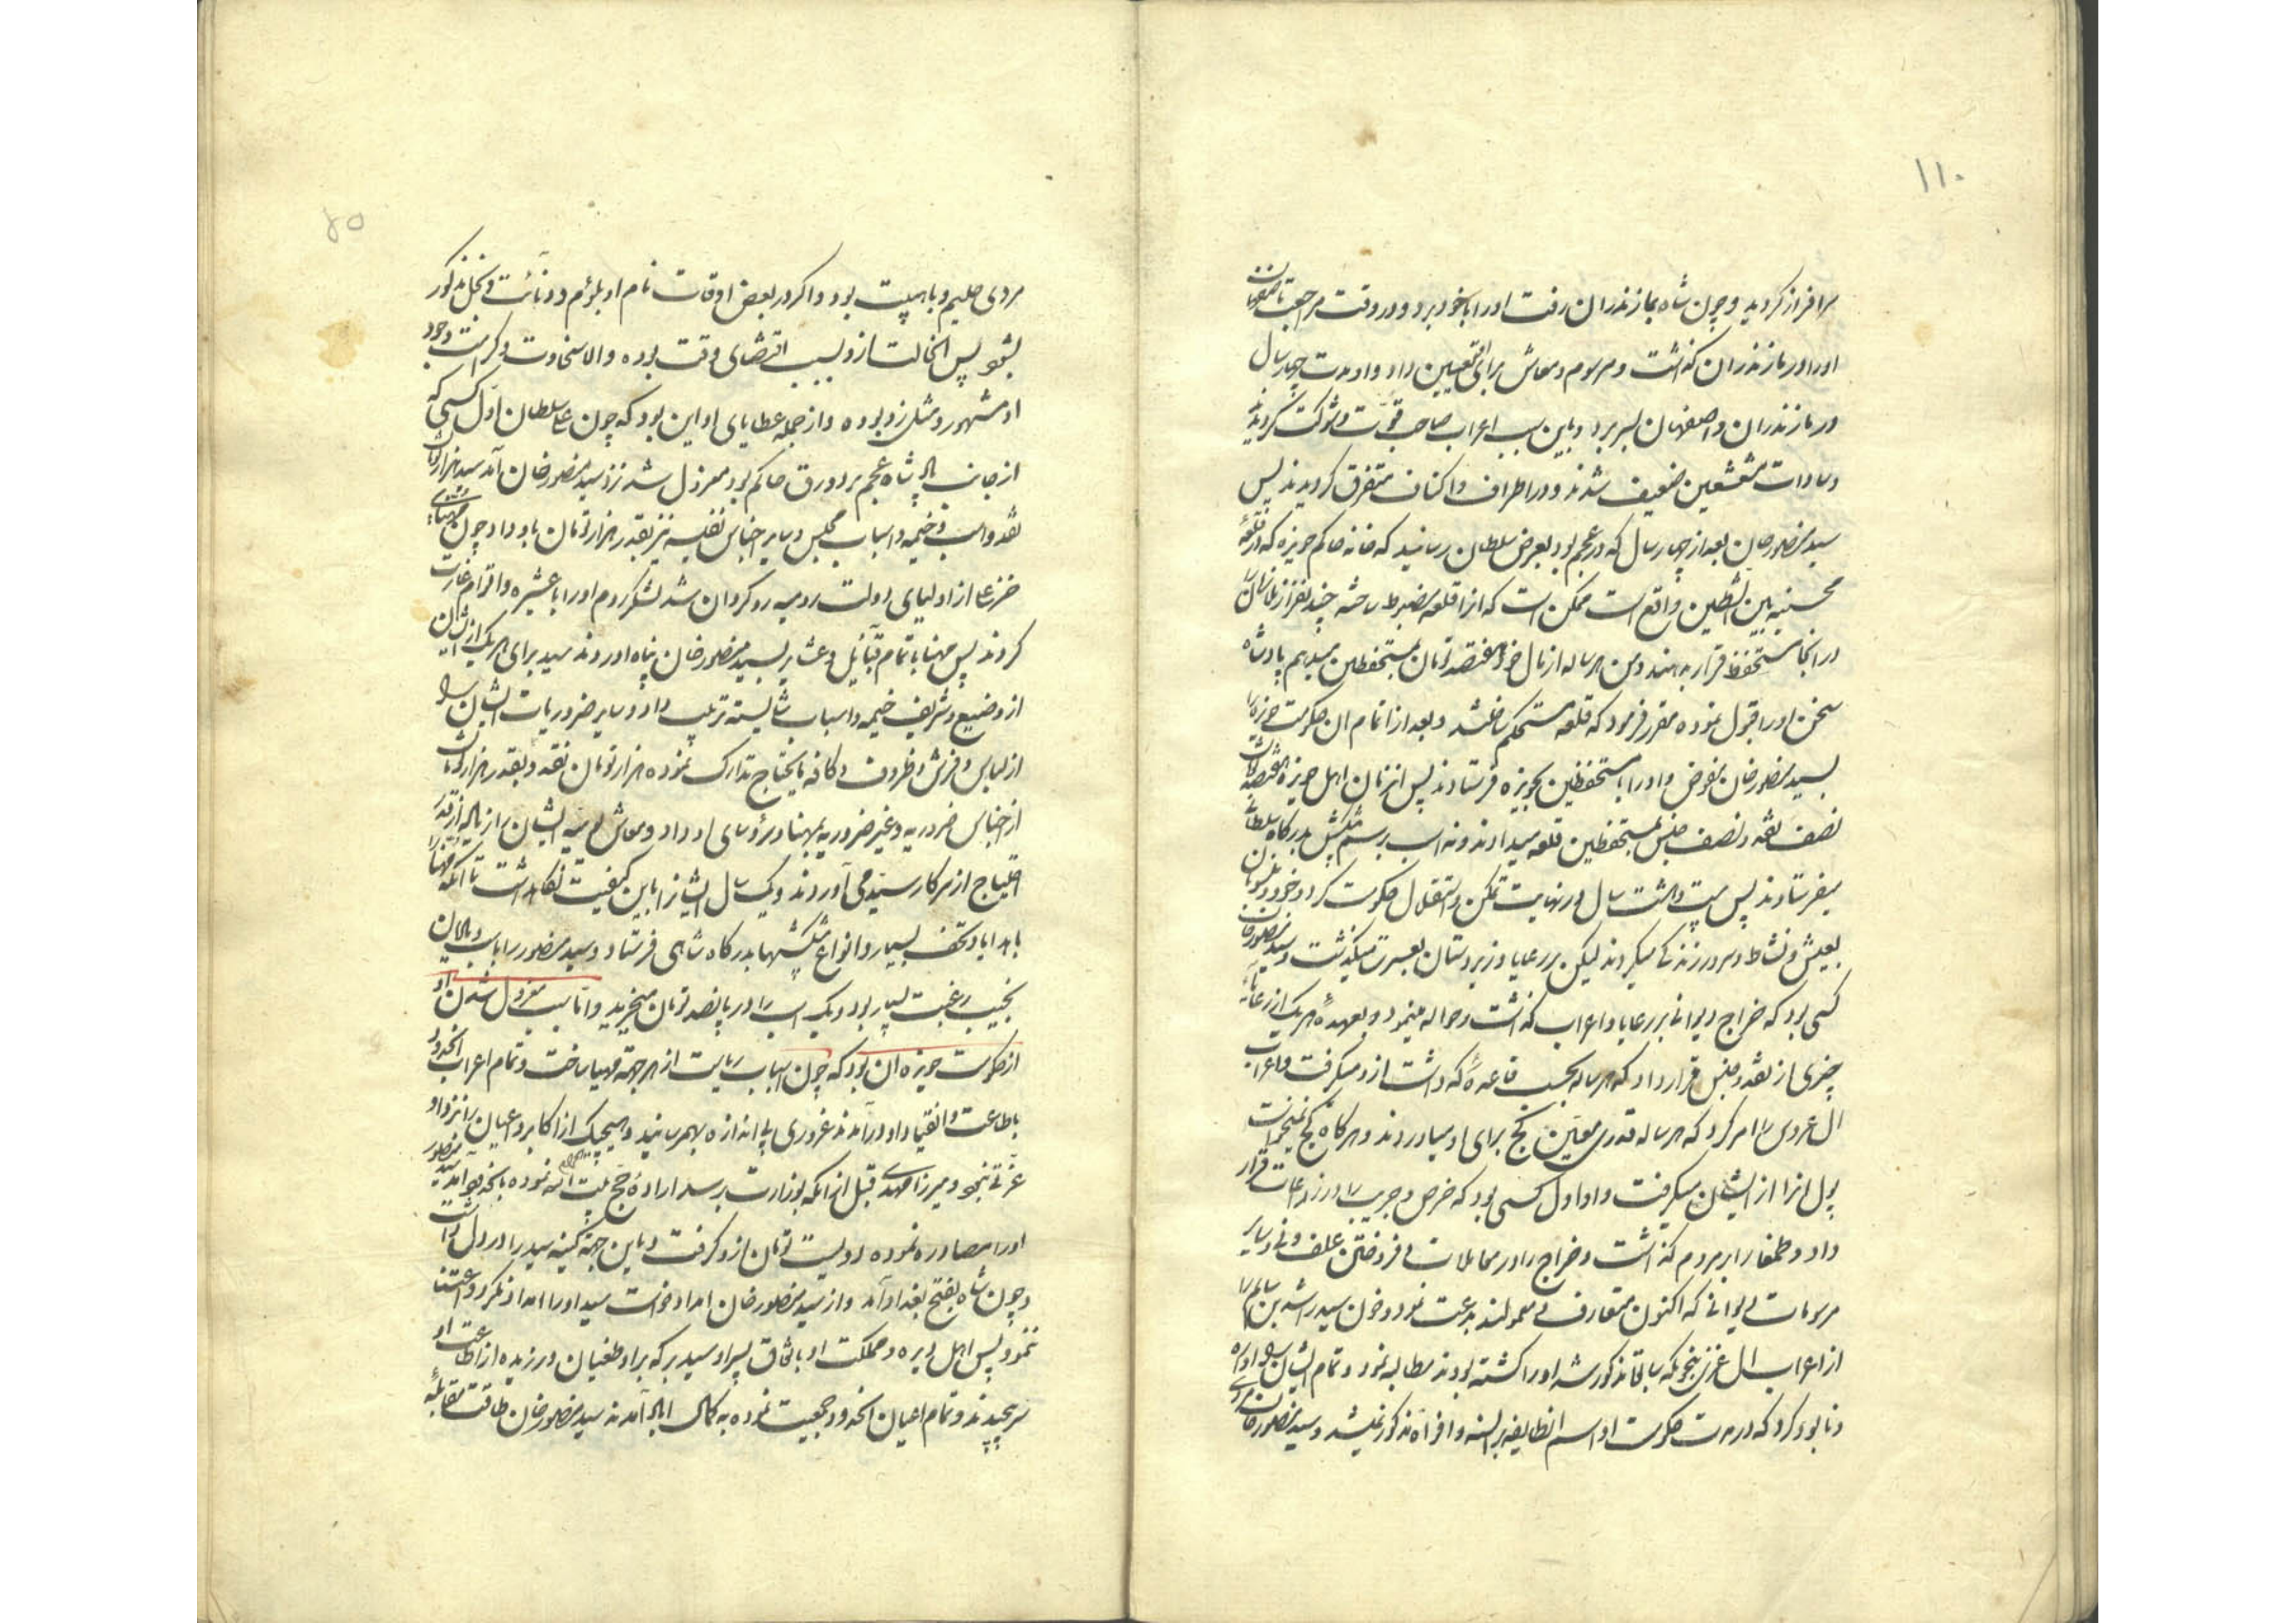 ۱۱۰
سرافراز کردید و چون شاه بمازندران رفت اورا باخود برد و در وقت مراجعت باصفهان
اورا در مازندران گذاشت و مرسوم و معاش برای تعیین داد و او مدت چهار سال
در مازندران و اصفهان بسر برد و باین سبب اعراب صاحب قوت و شوکت گردیدند
و سادات مشعشعین ضعیف شدند و در اطراف و اکناف متفرق گردیدند پس
سید منصور خان بعد از چهار سال که در عجم بود بعرض سلطان رسانید که خانه حاکم حویزه که در قلعهٔ
محسنیه بین الشطین واقع است ممکن است که انرا قلعه مضبوط ساخته چند نفر از غلامان را
در انجا مستحفظ قرار بدهند و من هر ساله از مال خود هفتصد تومان بمستحفظین میدهم پادشاه
سخن اورا قبول نموده مقرر فرمود که قلعه مستحکم ساختند و بعد از اتمام ان حکومت حویزه را
بسید منصور خان مفوض و اورا با مستحفظین بحویزه فرستادند پس از آنزمان اهل حویزه هفتصد تومان
نصف نقد و نصف جنس بمستحفظین قلعه میدادند و نه اسب برسم پیشکش بدرگاه سلطانی
میفرستادند پس بیست و هشت سال در نهایت تمکن و استقلال حکومت کرد و خود و منسوبان
بعیش و نشاط و سرور زندگی میکردند لیکن بر رعایا و زیردستان بعسرت میگذشت و سید منصور خان
کسی بود که خراج دیوانی بر رعایا و اعراب گذاشت و حواله مینمود و بعهدهٔ هر یک از رعایا
چیزی از نقد و جنس قرار داد که هر ساله بحسب قاعدهٔ که داشت ازو میگرفت و اعراب
ال عروس را امر کرد که هر ساله قدری معین گچ برای او میاوردند و هرگاه گچ نمیخواست
پول انرا از ایشان میگرفت و او اول کسی بود که خرص و جریب را در زراعات قرار
داد و طمغا را بر مردم گذاشت و خراج را در معاملات فروختن علف و نی و سایر
مرسومات دیوانی که اکنون متعارف و معمولند بدعت نمود و خون سید راشد بن سالم را
از اعراب ال غزی بنحویکه سابقا مذکور شد اورا کشته بودند مطالبه نمود و تمام ایشان را اواره
و نابود کرد که در مدت حکومت او اسم انطایفه بر السنه و افواه مذکور نمیشد و سید منصور خان مردی
۶۵
مردی حلیم و باهیبت بود و اگر در بعض اوقات نام او بلوم و دنائت و بخل مذکور
بشود پس انحالت ازو بسبب اقتضای وقت بوده والا سخاوت و کرامت وجود
او مشهور و مثل زد بوده و از جمله عطایای او این بود که چون علی سلطان اول کسی که
از جانب شاه عجم بر دورق حاکم بود معزول شد نزد سید منصور خان آمد سید هزار تومان
نقد و اسب و خیمه و اسباب مجلس و سایر اجناس نفیسه نیز بقدر هزار تومان باو داد و چون مهنای
خزعل از اولیای دولت رومیه روگردان شد لشکر روم اورا با عشیره و اقوام غارت
کردند پس مهنا با تمام قبائل و عشایر بسید منصور خان پناه اوردند سید برای هر یک از ایشان
از وضیع و شریف خیمه و اسباب شایسته ترتیب داد و سایر ضروریات ایشان را
از لباس و فرش و ظروف و کافه مایحتاج تدارک نموده هزار تومان نقد و بقدر هزار تومان
از اجناس ضروریه و غیر ضروریه بمهنا و رؤسای او داد و معاش یومیه ایشان را از ماله از قدر
احتیاج از سرکار سید می آوردند و یک سال ایشانرا باین کیفیت نگاهداشت تا آنکه مهنا را
باهدایا و تحف بسیار و انواع پیشکشها بدرگاه شاهی فرستاد و سید منصور را باسب و
نجیب رغبت بسیار بود و یک اسب را در پانصد تومان میخرید و اما سبب معزول شدن او
از حکومت حویزه ان بود که چون اسباب ریاست از هر جهة مهیا ساخت و تمام اعراب انحدود
باطاعت و انقیاد او درآمدند غروری بی اندازه بهمرسانید و هیچیک از اکابر و اعیان را نزد او
عزتی نبود و میرزا مهدی قبل از آنکه بوزارت برسد ارادهٔ حج بیت الله الحرام نموده بانحدود آمد سید منصور
اورا مصادره نموده دویست تومان ازو گرفت و باین جهة کینه سید را در دل داشت
و چون شاه بفتح بغداد آمد و از سید منصور خان امداد خواست سید اورا امداد نکرد و اعتنا
ننمود پس اهل دیره و مملکت او باتفاق پسر او سید برکه برو طغیان ورزیده از اطاعت او
سرپیچیدند و تمام اعیان انحدود جمعیت نموده به آمدند سید منصور خان طاقت مقابلهٔ